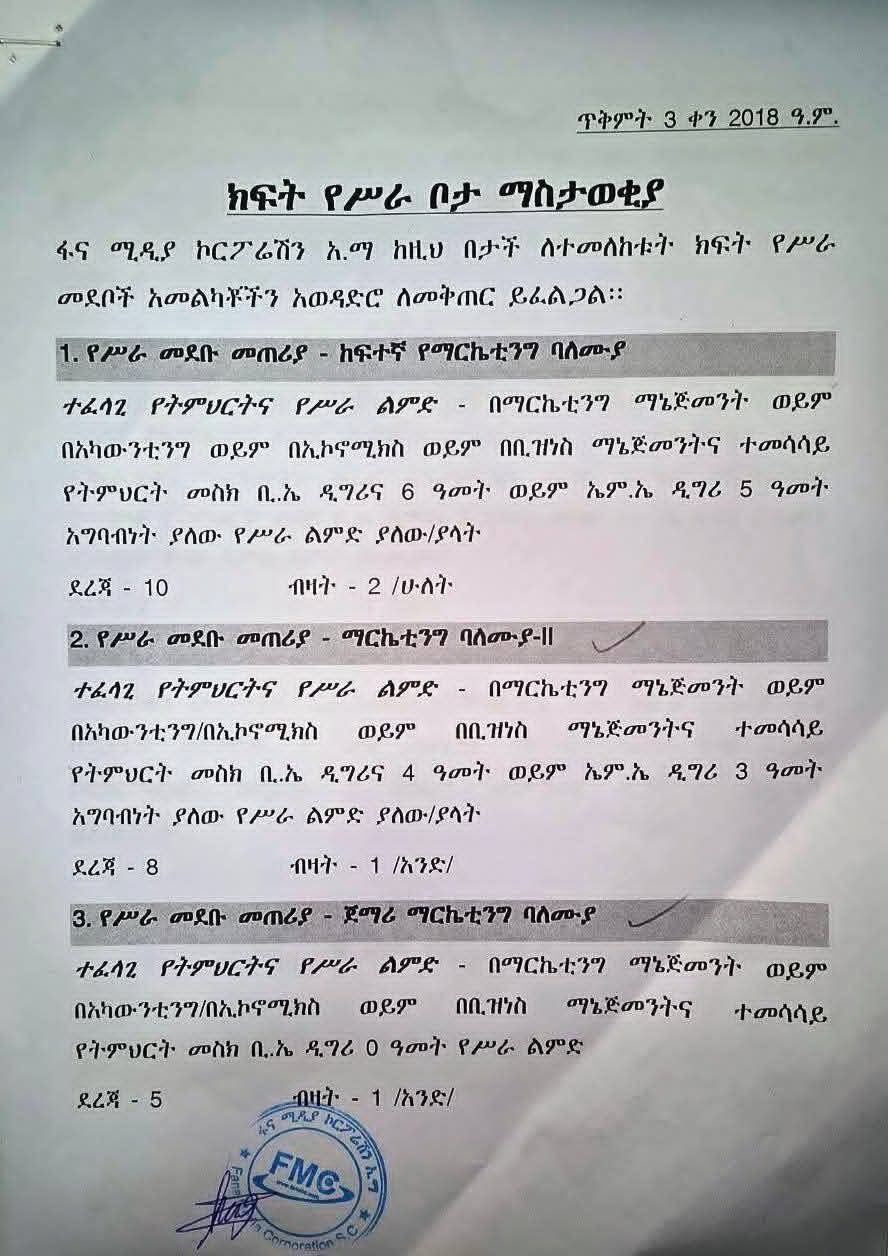 ጥቅምት 3 ቀን 2018 ዓ.ም.
ክፍት የሥራ ቦታ ማስታወቂያ
ፋና ሚዲያ ኮርፖሬሽን አ.ማ ከዚህ በታች ለተመለከቱት ክፍት የሥራ
መደቦች አመልካቾችን አወዳድሮ ለመቅጠር ይፈልጋል፡፡
1. የሥራ መደቡ መጠሪያ - ከፍተኛ የማርኬቲንግ ባለሙያ
ተፈላጊ የትምህርትና የሥራ ልምድ - በማርኬቲንግ ማኔጅመንት ወይም
በአካውንቲንግ ወይም በኢኮኖሚክስ ወይም በቢዝነስ ማኔጅመንትና ተመሳሳይ
የትምህርት መስክ ቢ.ኤ ዲግሪና 6 ዓመት ወይም ኤም.ኤ ዲግሪ 5 ዓመት
አግባብነት ያለው የሥራ ልምድ ያለው/ያላት
ደረጃ - 10 ብዛት - 2 /ሁለት
2. የሥራ መደቡ መጠሪያ - ማርኬቲንግ ባለሙያ-II
ተፈላጊ የትምህርትና የሥራ ልምድ - በማርኬቲንግ ማኔጅመንት ወይም
በአካውንቲንግ/በኢኮኖሚክስ ወይም በቢዝነስ ማኔጅመንትና ተመሳሳይ
የትምህርት መስክ ቢ.ኤ ዲግሪና 4 ዓመት ወይም ኤም.ኤ ዲግሪ 3 ዓመት
አግባብነት ያለው የሥራ ልምድ ያለው/ያላት
ደረጃ - 8 ብዛት - 1 /አንድ/
3. የሥራ መደቡ መጠሪያ - ጀማሪ ማርኬቲንግ ባለሙያ
ተፈላጊ የትምህርትና የሥራ ልምድ - በማርኬቲንግ ማኔጅመንት ወይም
በአካውንቲንግ/በኢኮኖሚክስ ወይም በቢዝነስ ማኔጅመንትና ተመሳሳይ
የትምህርት መስክ ቢ.ኤ ዲግሪ 0 ዓመት የሥራ ልምድ
ደረጃ - 5 ብዛት - 1 /አንድ/
ፋና ሚዲያ ኮርፖሬሽን ኢ.ማ
FMC
Corporation S.C